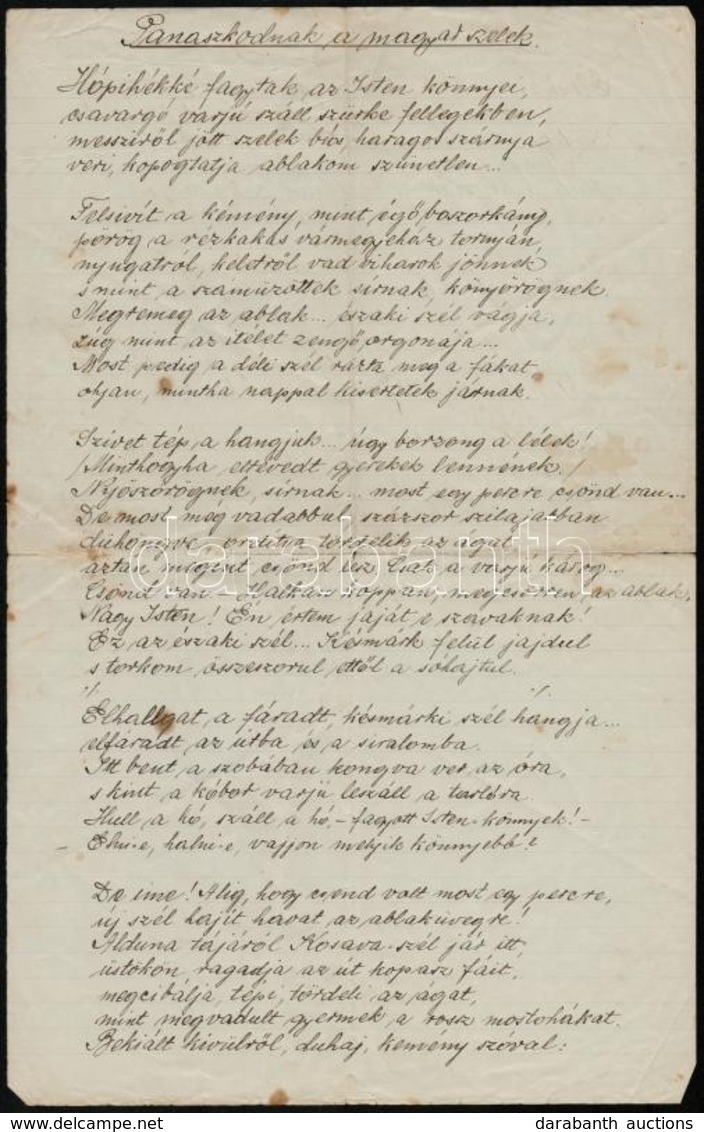 Panaszkodnak a magyar szelek.
Hópihékké fagytak, az Isten könnyei,
csavargó varjú száll szürke fellegekben,
messziről jött szelek bús, haragos szárnya
veri, kopogtatja ablakom szüntelen...
Felsivít a kémény, mint égő boszorkány,
pörög a rézkakas vármegyeház tornyán,
nyugatról, keletről vad viharok jönnek
s mint a száműzöttek sírnak, könyörögnek.
Megremeg az ablak... északi szél vágja,
zúg mint az itélet zengő orgonája...
Most pedig a déli szél rázta meg a fákat
olyan, mintha nappal kisértetek járnak.
Szivet tép, a hangjuk... úgy borzong a lélek!
/Minthogyha eltévedt gyerekek lennének./
Nyöszörögnek, sírnak... most egy percre csönd van...
De most meg vadabbul, százszor szilajabban
dühöngve, ordítva tördelik az ágat
aztán megint csönd lesz. Csak a varjú károg...
Csönd van - Halkan koppan, megcsörren az ablak,
Nagy Isten! Én értem jáját e szavaknak!
Ez az északi szél... Késmárk felül jajdul
s torkom összeszorul ettől a sóhajtul.
Elhallgat, a fáradt, késmárki szél hangja...
elfáradt az útba és a siralomba.
Itt bent a szobában kongva ver az óra,
s kint a kóbor varjú leszáll a tarlóra.
Hull a hó, száll a hó, - fagyott Isten-könnyek! -
- Élni-e, halni-e, vajjon melyik könnyebb?
De ime! Alig, hogy csend volt most egy percre,
új szél hajít havat az ablaküvegre!
Alduna tájáról Kosava-szél jár itt,
üstökön ragadja az út kopasz fáit,
megcibálja, tépi, tördeli az ágat,
mint megvadult gyermek a rossz mostohákat.
Bekiált kivülről, duhaj, kemény szóval:
darabanth
darabanth auctions